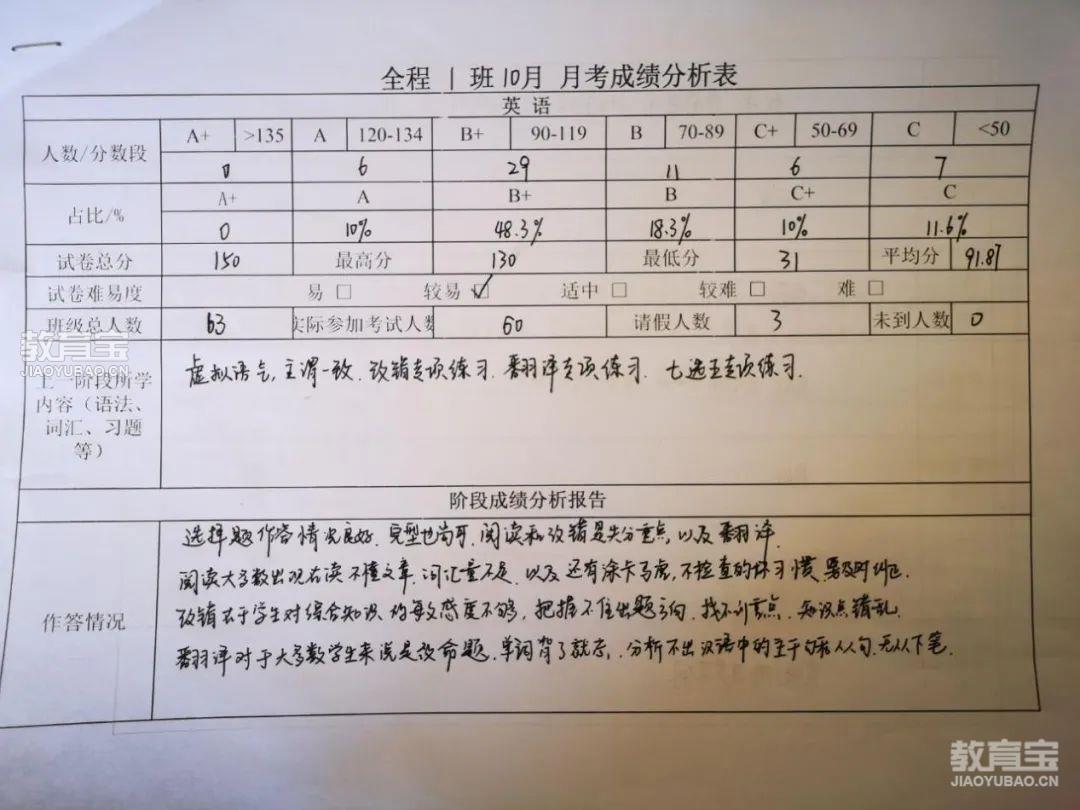 全程 1 班 10月 月考成绩分析表
英 语
人数/分数段 A+ >135 A 120-134 B+ 90-119 B 70-89 C+ 50-69 C <50
0 6 29 11 6 7
占比/% A+ A B+ B C+ C
0 10% 48.3% 18.3% 10% 11.6%
试卷总分 150 最高分 130 最低分 31 平均分 91.87
试卷难易度 易 □ 较易 ☑ 适中 □ 较难 □ 难 □
班级总人数 63 实际参加考试人数 60 请假人数 3 未到人数 0
教育宝
JIAOYUBAO.CN
上一阶段所学
内容（语法、
词汇、习题
等）
虚拟语气，主谓一致，改错专项练习，翻译专项练习，七选五专项练习.
阶段成绩分析报告
作答情况
选择题作答情况良好，完型也尚可，阅读和改错是失分重点，以及翻译.
阅读大多数出现在读不懂文章，词汇量不足，以及还有涂卡马虎，不检查的坏习惯，要及时纠正.
改错在于学生对综合知识的敏感度不够，把握不住出题方向，找不到重点，知识点错乱.
翻译对于大多数学生来说是改命题，单词背了就忘，分析不出汉语中的主干句和从句，无从下笔.
教育宝
JIAOYUBAO.CN